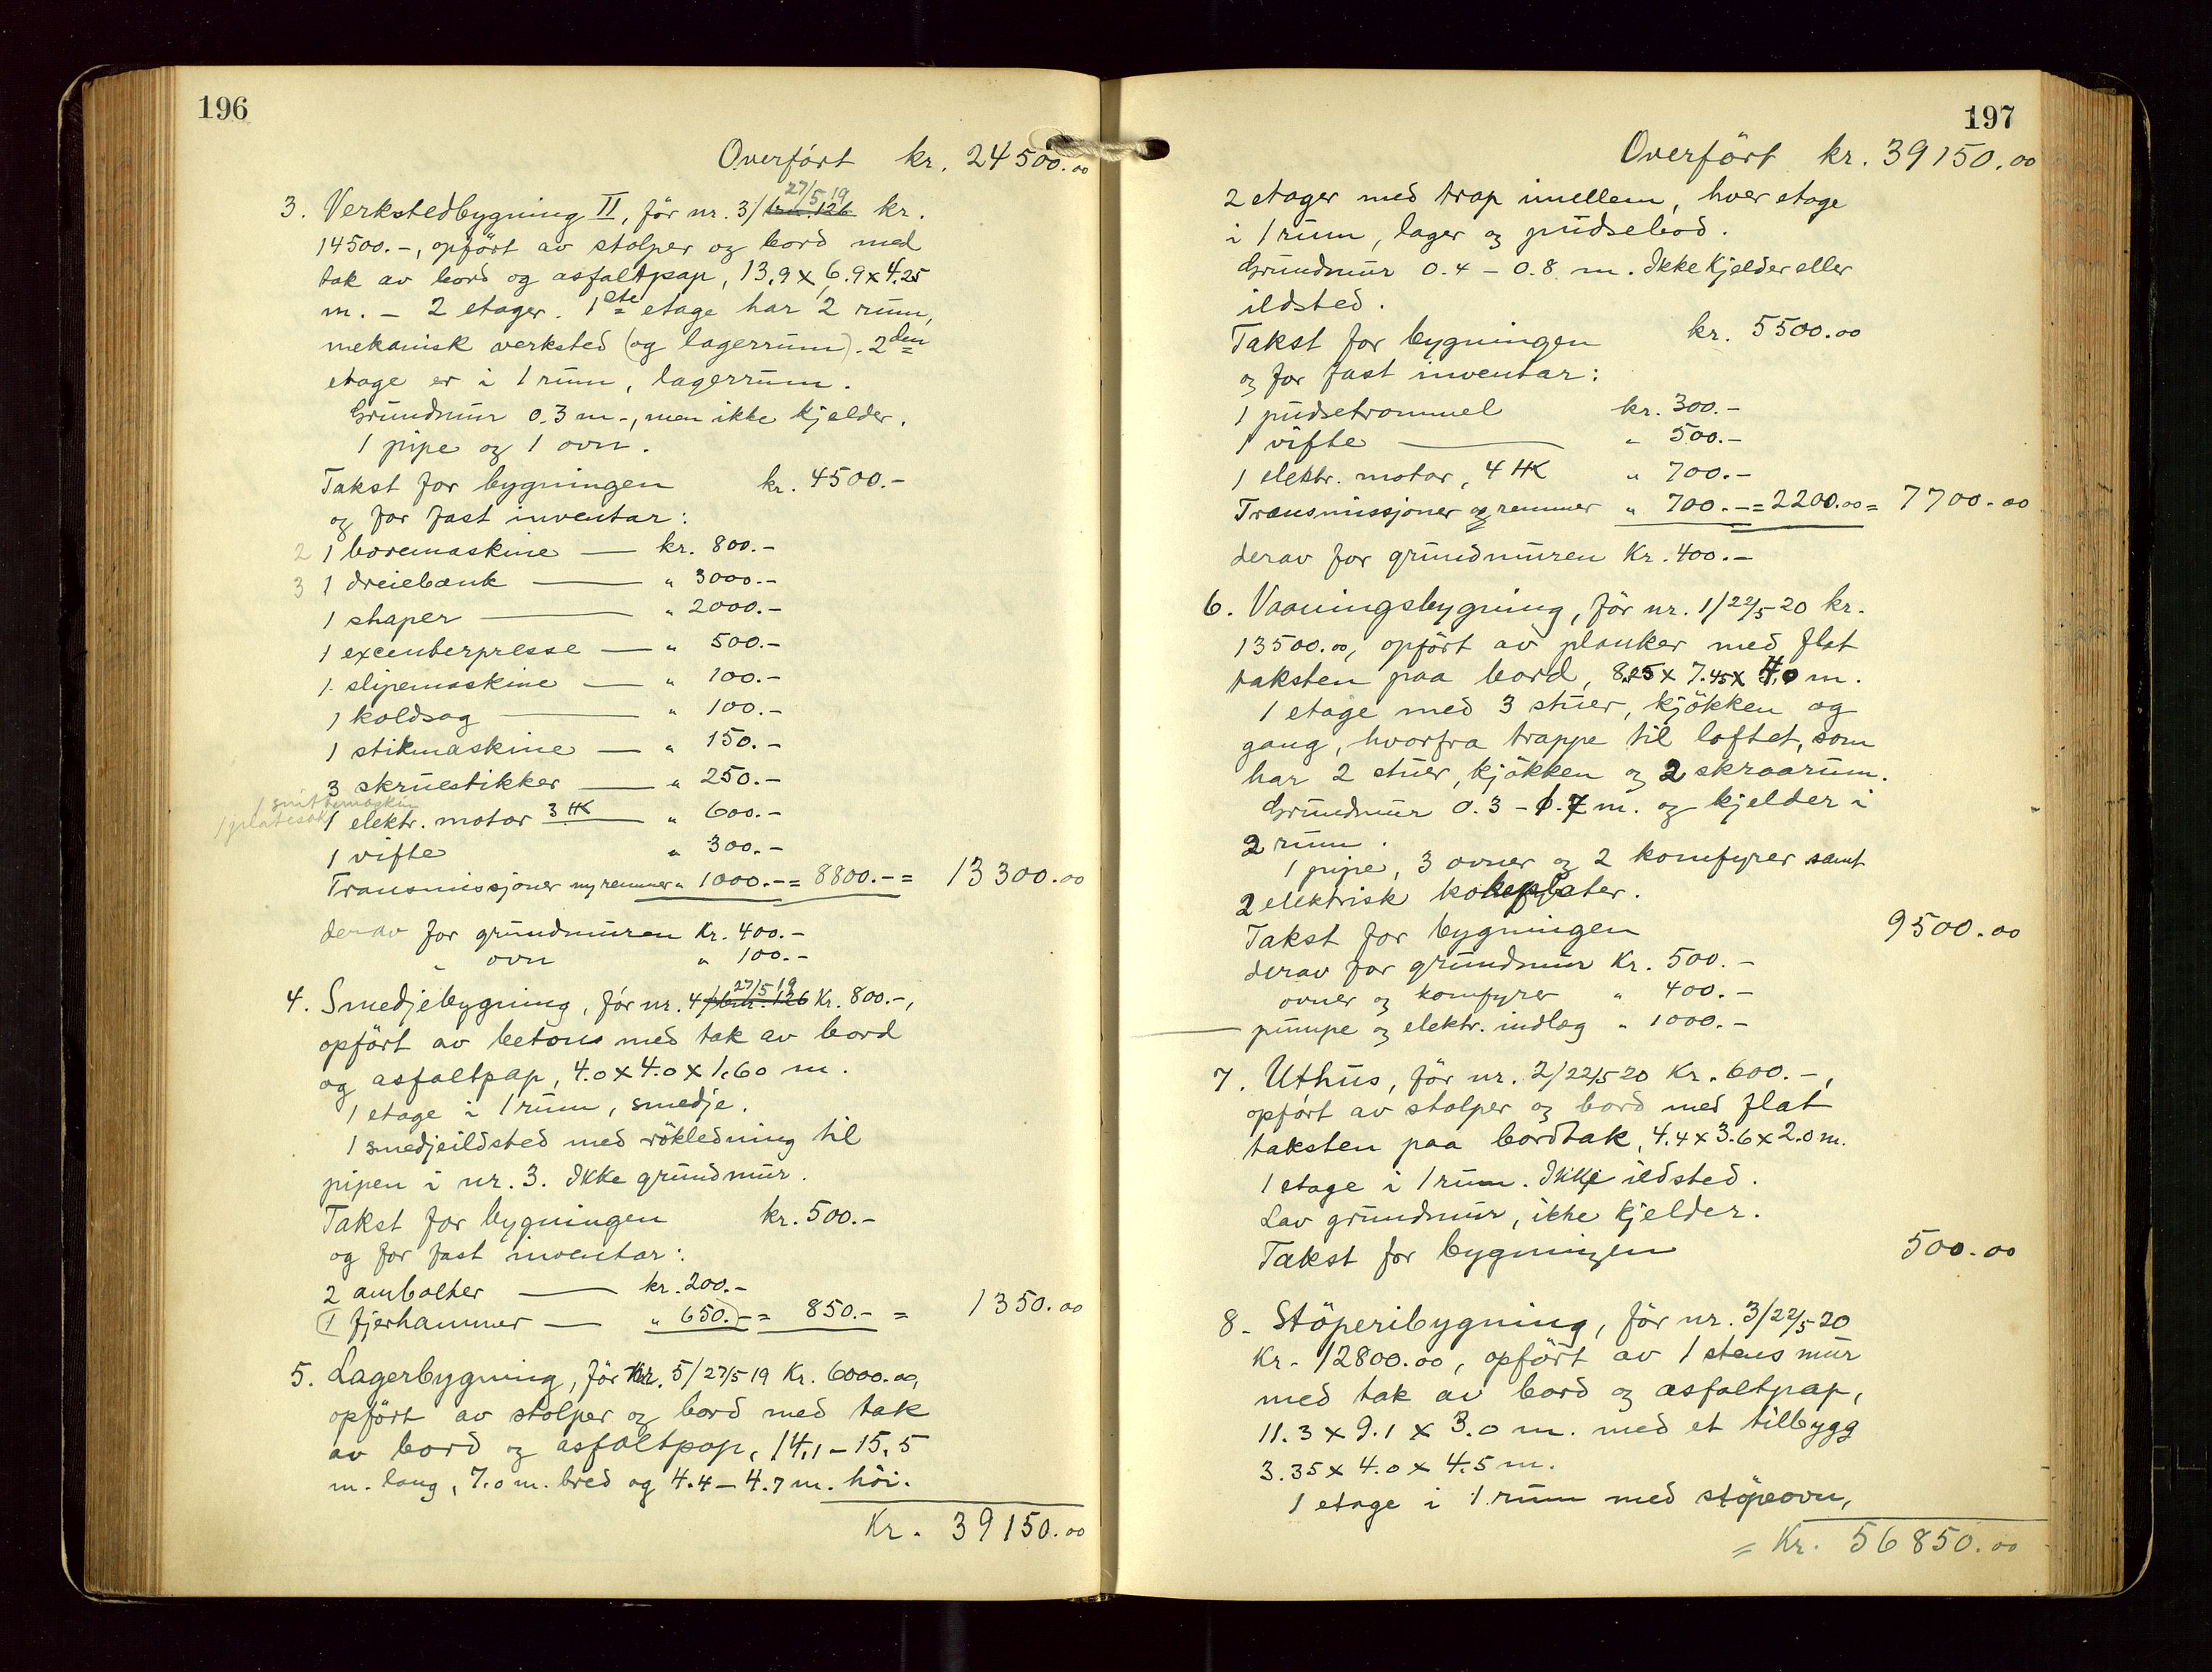 196
Overført kr. 24500.00
27/5 19
3. Verkstedbygning II, før nr. 3/ br.nr. 126 kr.
14500.-, opført av stolper og bord med
tak av bord og asfaltpap, 13.9 x 6.9 x 4.25
m. - 2 etager. 1ste etage har 2 rum,
mekanisk verksted (og lagerrum). 2den
etage er i 1 rum, lagerrum.
Grundmur 0.3 m-, men ikke kjelder.
1 pipe og 1 ovn.
Takst for bygningen kr. 4500.-
og for fast inventar:
2 1 boremaskine — kr. 800.-
3 1 dreiebænk — " 3000.-
1 shaper — " 2000.-
1 excenterpresse — " 500.-
1 slipemaskine — " 100.-
1 koldsag — " 100.-
1 stikmaskine — " 150.-
3 skruestikker — " 250.-
1 smittemaskin
1 platesaks
1 elektr. motor 3 HK — " 600.-
1 vifte " 300.-
Transmissjoner og remmer " 1000.- = 8800.- = 13300.00
derav for grundmuren Kr. 400.-
" ovn " 100.-
27/5 19
4. Smedjebygning, før nr. 4/ br.nr. 126 Kr. 800.-,
opført av betong med tak av bord
og asfaltpap, 4.0 x 4.0 x 1.60 m.
1 etage i 1 rum, smedje.
1 smedjeildsted med røkledning til
pipen i nr. 3. Ikke grundmur.
Takst for bygningen kr. 500.-
og for fast inventar:
2 ambolter — kr. 200.-
(1 fjerhammer — " 650.-) = 850.- = 1350.00
5. Lagerbygning, før nr. 5/27/5 19 Kr. 6000.00,
opført av stolper og bord med tak
av bord og asfaltpap, 14.1 - 15.5
m. lang, 7.0 m. bred og 4.4 - 4.7 m. høi.
Kr. 39150.00
197
Overført kr. 39150.00
2 etager med trap imellem, hver etage
i 1 rum, lager og pudsebod.
Grundmur 0.4 - 0.8 m. Ikke kjelder eller
ildsted.
Takst for bygningen kr. 5500.00
og for fast inventar:
1 pudsetrommel kr. 300.-
1 vifte — " 500.-
1 elektr. motor, 4 HK " 700.-
Transmissjoner og remmer " 700.- = 2200.00 = 7700.00
derav for grundmuren Kr. 400.-
6. Vaaningsbygning, før nr. 1/22/5 20 kr.
13500.00, opført av planker med flat
taksten paa bord, 8.25 x 7.45 x 4.0 m.
1 etage med 3 stuer, kjøkken og
gang, hvorfra trappe til loftet, som
har 2 stuer, kjøkken og 2 skraarum.
Grundmur 0.3 - 1.7 m. og kjelder i
2 rum.
1 pipe, 3 ovner og 2 komfyrer samt
2 elektrisk kokeplater.
Takst for bygningen 9500.00
derav for grundmur Kr. 500.-
ovner og komfyrer " 400.-
pumpe og elektr. indlæg " 1000.-
7. Uthus, før nr. 2/22/5 20 Kr. 600.-,
opført av stolper og bord med flat
taksten paa bordtak, 4.4 x 3.6 x 2.0 m.
1 etage i 1 rum. Ikke ildsted.
Lav grundmur, ikke kjelder.
Takst for bygningen 500.00
8. Støperibygning, før nr. 3/22/5 20
Kr. 12800.00, opført av 1 stens mur
med tak av bord og asfaltpap,
11.3 x 9.1 x 3.0 m. med et tilbygg
3.35 x 4.0 x 4.5 m.
1 etage i 1 rum med støpeovn,
= Kr. 56850.00